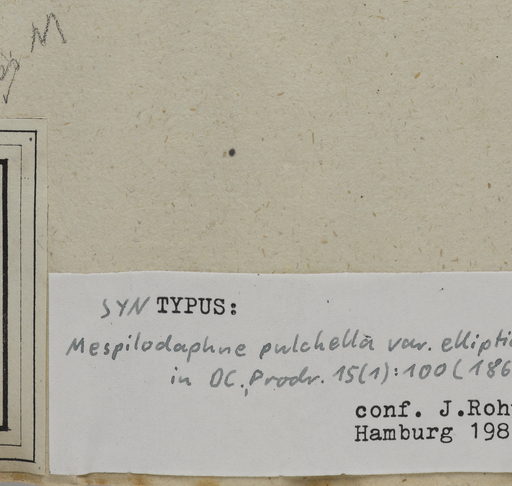 M
SYN TYPUS:
Mespilodaphne pulchella var. ellipti
in DC, Prodr. 15(1):100(186
conf. J.Roh
Hamburg 198